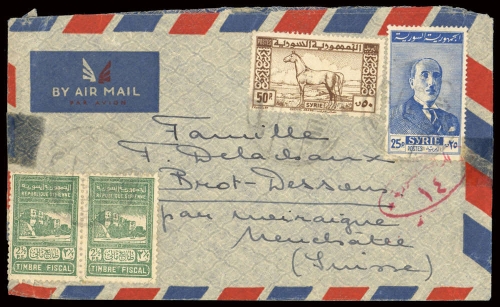 BY AIR MAIL
PAR AVION
الجمهورية السورية
50P
SYRIE
الجمهورية السورية
25P
SYRIE
POSTES
٢٥
Famille
F. Delachaux
Brot-Dessous
par Noiraigue
Neuchâtel
(Suisse)
١٤
الجمهورية السورية
REPUBLIQUE SYRIENNE
TIMBRE FISCAL
الجمهورية السورية
REPUBLIQUE SYRIENNE
TIMBRE FISCAL